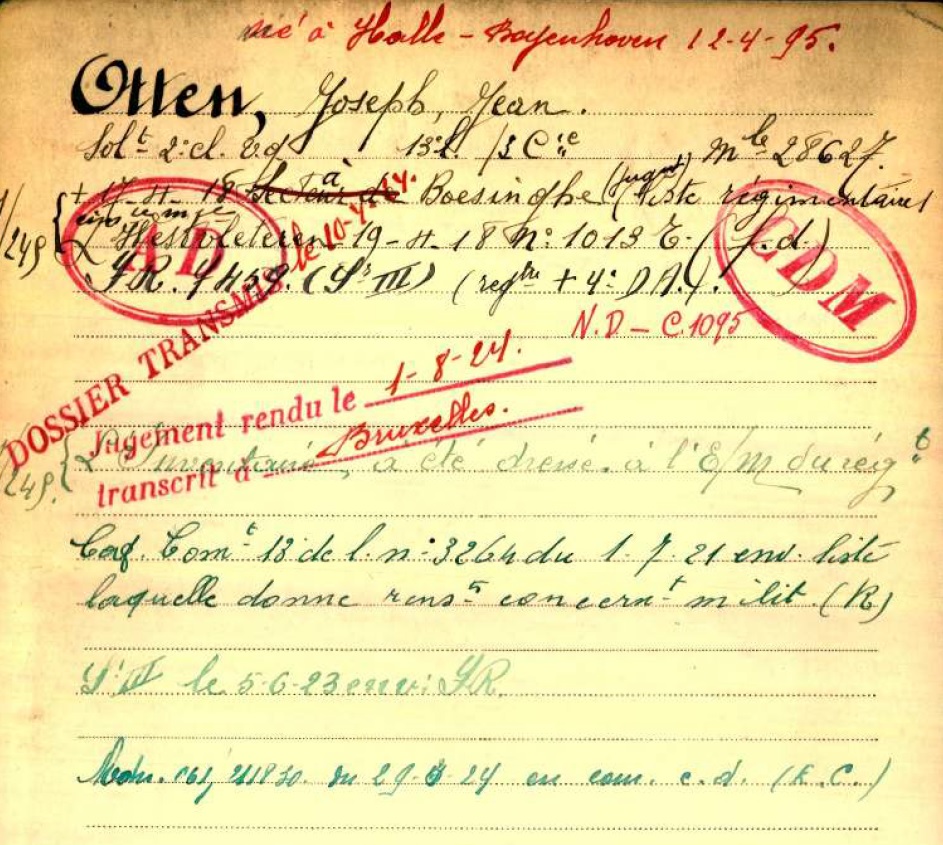 né à Halle - Boyenhoven 12-4-95.
Otten, Joseph, Jean.
Solt 2e cl. 13e l. /3 Cie Mle 28627.
+ 17-4-18 à Boesinghe (jugemt) (liste régimentaire)
Westvleteren 19-4-18 No 1013 E. (f.d.)
(Sr III) (regtre + 4e DA).
AD
CDM
N.D - C.1095
DOSSIER TRANSMIS le 10-4-24.
1/249
Jugement rendu le 1-8-24.
transcrit à Bruxelles.
Inventaire, a été dressé à l'E/M du régt
249.
13 de l. n° 3264 du 1-7-21 env. liste
laquelle donne renss concernt milit. (R)
Sr III le 5-6-23 env:
du 29 24 en com. c.d. (E.C.)